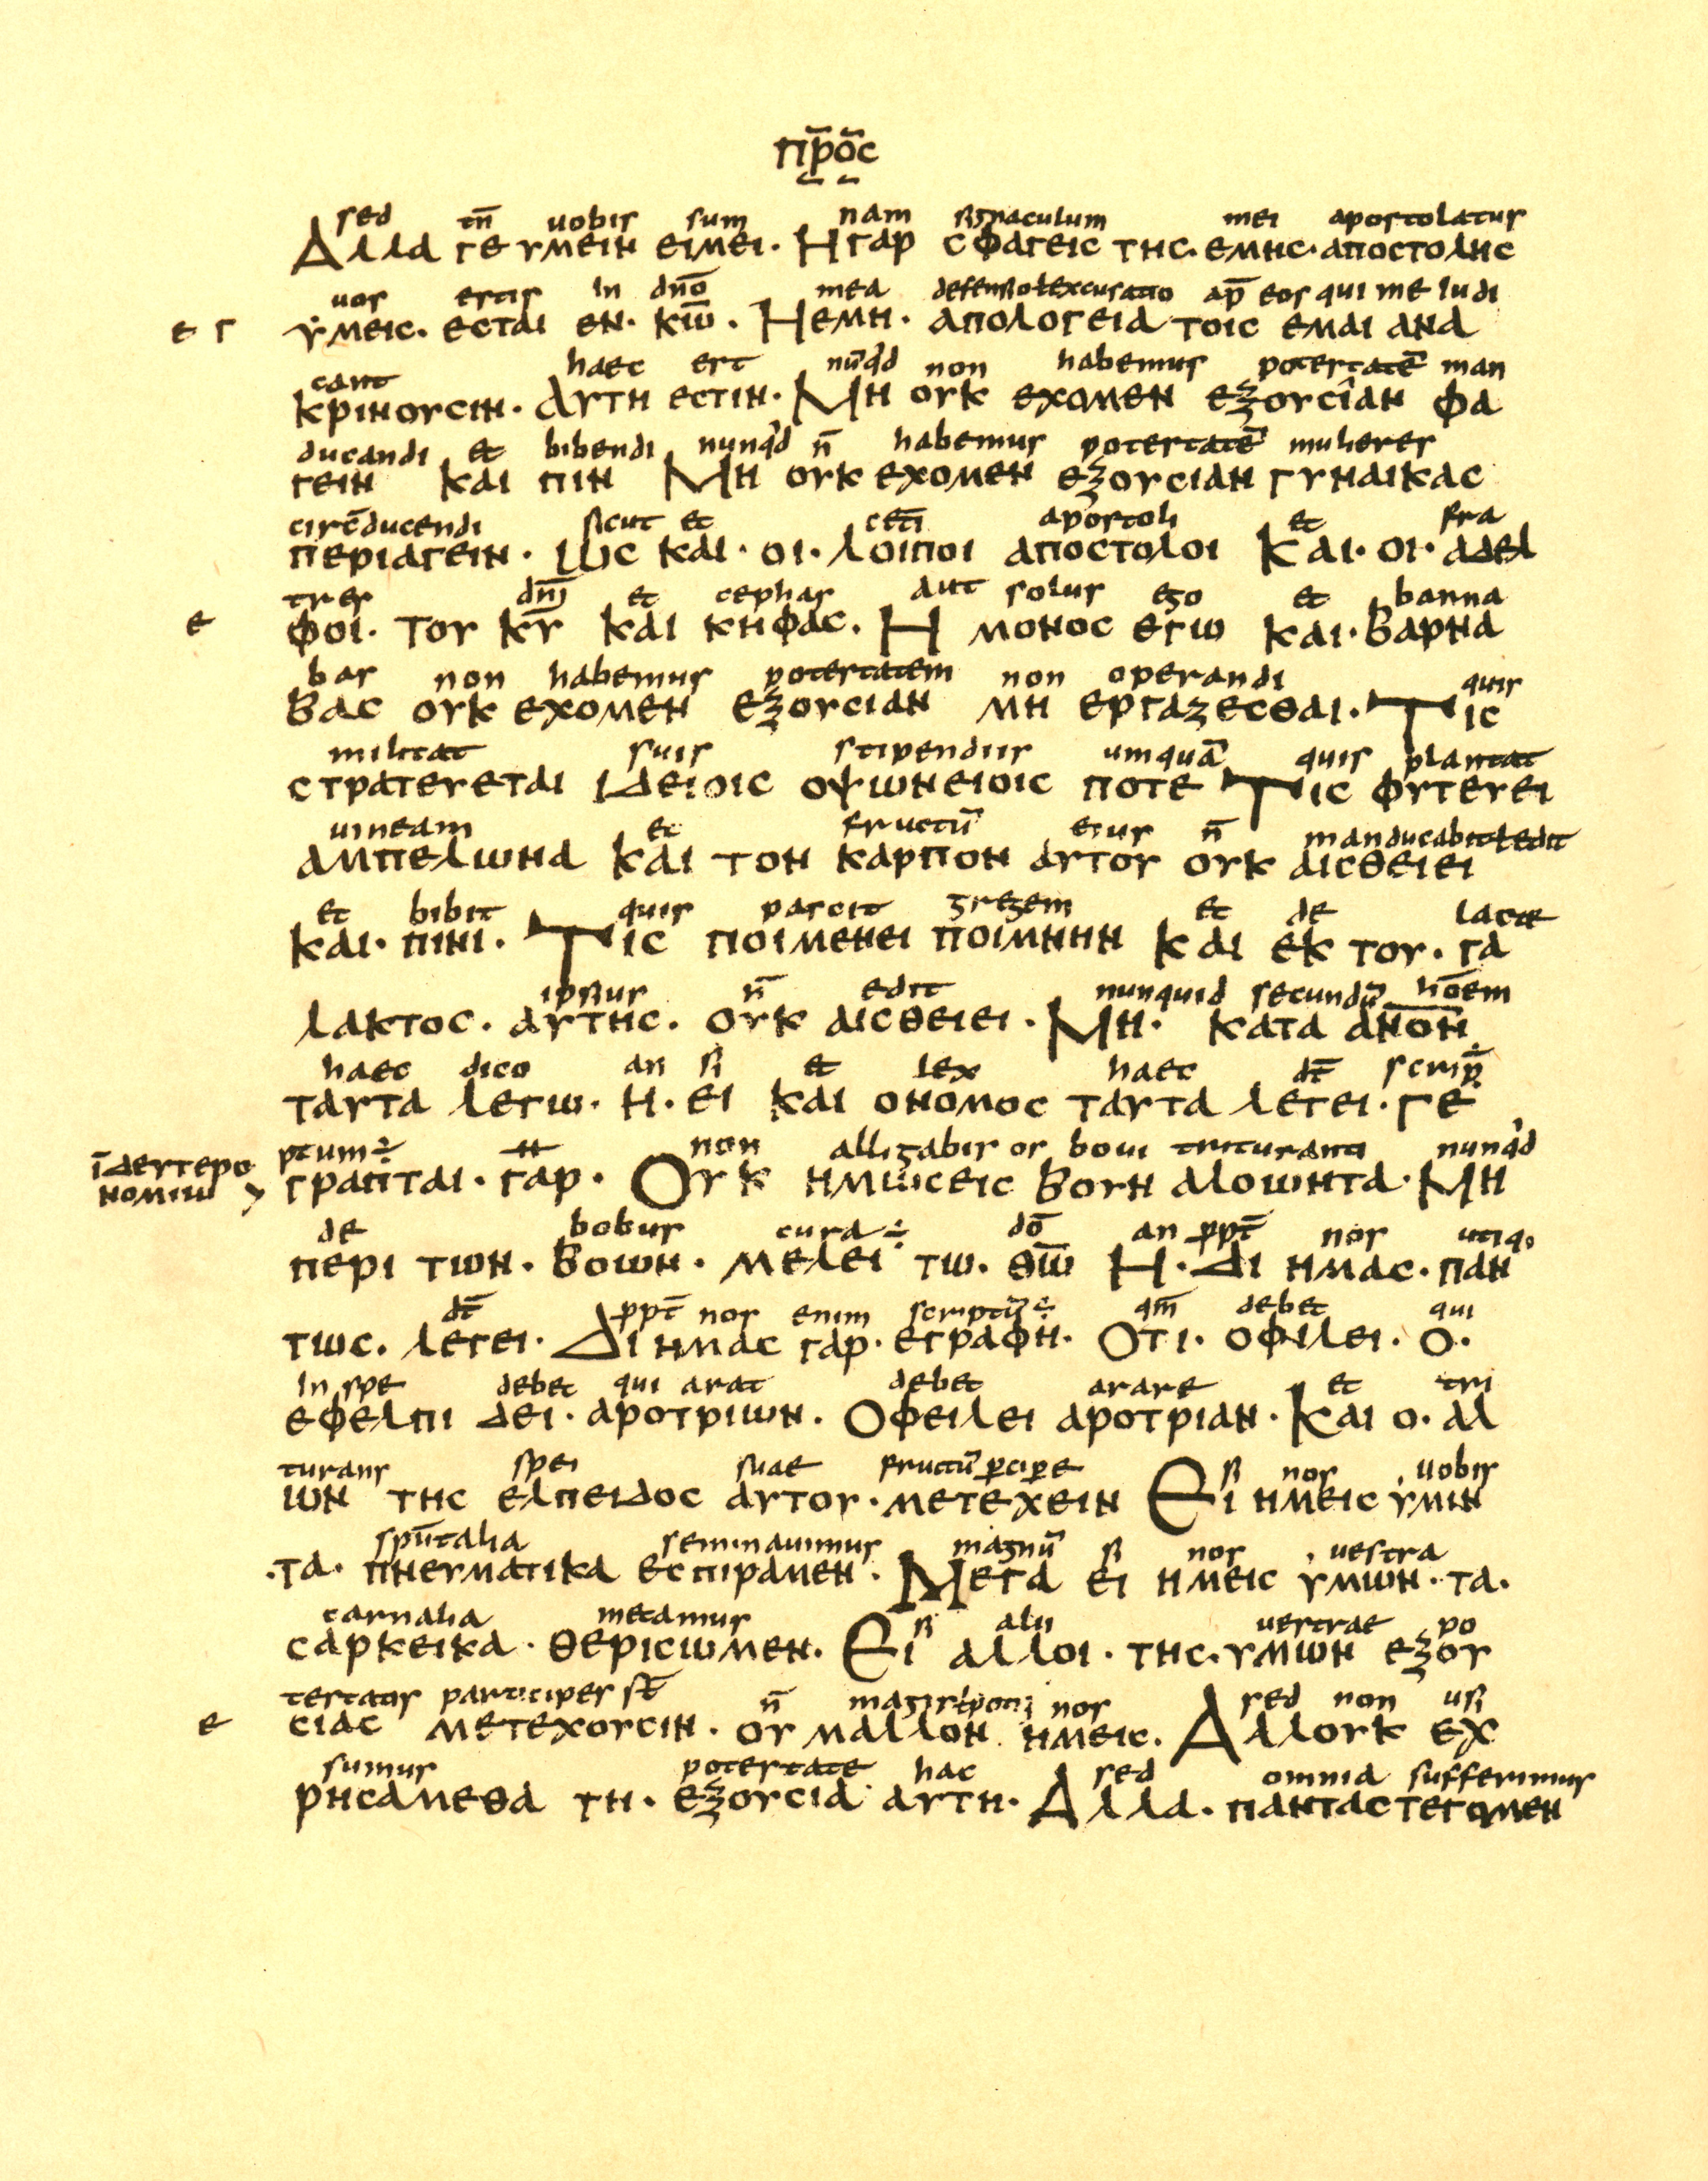 προς
sed tn̄ uobis sum nam signaculum mei apostolatus
Αλλα γε υμειν ειμει· Η γαρ σφαγεις της· εμης· αποστολης
uos estis in dn̄o mea defensio ł excusatio ap̄ eos qui me iudi
ε γ υμεις· εσται εν· κ̄ω̄· Η εμη· απολογεια τοις εμαι ανα
cant haec est nūq'd non habemus potestatē man
κρινουσιν· αυτη εστιν· Μη ουκ εχομεν εξουσιαν φα
ducandi et bibendi nunq'd n̄ habemus potestatē mulieres
γειν και πιν Μη ουκ εχομεν εξουσιαν γυναικας
circ̄ducendi sicut et cet̄i apostoli et fra
περιαγειν· ιως και· οι· λοιποι αποστολοι Και· οι· αδελ
tres dn̄i et cephas aut solus ego et banna
ε φοι· του κ̄ῡ και κηφας· Η μονος εγω και· βαρνα
bas non habemus potestatem non operandi quis
βας ουκ εχομεν εξουσιαν μη εργαζεσθαι· Τις
militat suis stipendiis umquā quis plantat
στρατευεται ιδειοις οψωνειοις ποτε Τις φυτευει
uineam et fructū eius n̄ manducabit ł edit
αμπελωνα και τον καρπον αυτου ουκ αισθειει
et bibit quis pascit gregem et de lacte
και· πινι· Τις ποιμενει ποιμνην και εκ του· γα
ipsius n̄ edit nunquid secundū hōem
λακτος· αυτης· ουκ αισθειει· Μη· κατα αν̄ο̄ν̄
haec dico an si et lex haec dt̄ scrip
ταυτα λεγω· η· ει και ονομος ταυτα λεγει· γε
ptum ÷ H non alligabis os boui trituranti nunq'd
ῑ δευτερο
νομιω γραπται· γαρ· Ουκ ημωσεις βουν αλοωντα· Μη
de bobus cura ÷ dō an ppt̄ nos utiq;
περι των· βοων· μελει τω· θ̄ω̄ Η· Δι ημας· παν
dt̄ ppt̄ nos enim scriptū ÷ qm̄ debet qui
τως· λεγει· Δι ημας γαρ· εγραφη· Οτι· οφιλει· ο·
in spe debet qui arat debet arare et tri
εφελπι δει· αροτριων· Οφειλει αροτριαν· Και ο· αλ
turans spei suae fructū pcipe
ων της ελπειδος αυτου· μετεχειν
si nos uobis
Ει ημεις υμιν
spūtalia seminauimus magnū si nos uestra
·τα· πνευματικα εσπιραμεν· Μεγα ει ημεις υμων· τα·
carnalia metamus si alii uestrae po
σαρκεικα· θερισωμεν· Ει αλλοι· της· υμων εξου
testatis participes st̄ n̄ magis ł poti; nos sed non usi
ε σιας μετεχουσιν· ου μαλλον ημεις· Αλλουκ εχ
sumus potestate hac sed omnia sufferimus
ρησαμεθα τη· εξουσια αυτη· Αλλα· παντας τεγομεν